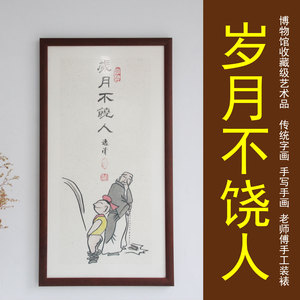 岁月不饶人
博物馆收藏级艺术品
传统字画 手写手画 老师傅手工装裱
歳月不饒人